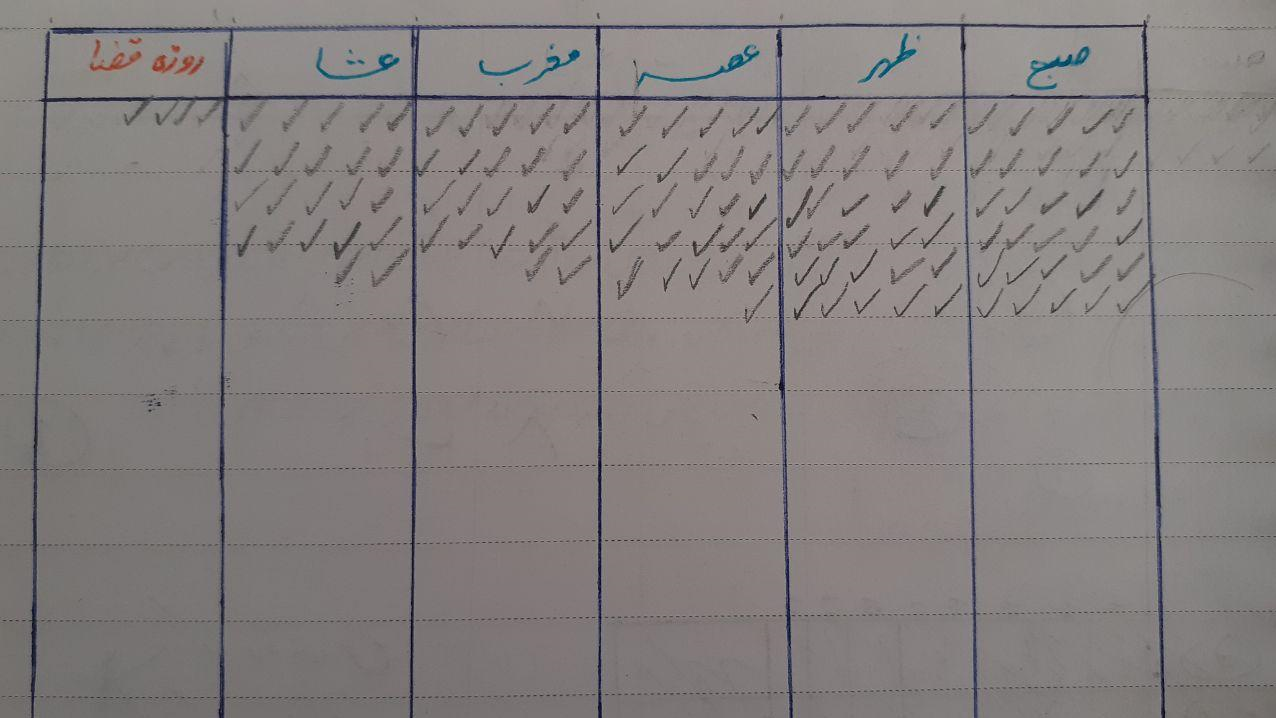 صبح ظهر عصر مغرب عشا روزه قضا
✓✓✓✓✓ ✓✓✓✓✓ ✓✓✓✓✓ ✓✓✓✓✓ ✓✓✓✓✓ ✓✓✓✓
✓✓✓✓✓ ✓✓✓✓✓ ✓✓✓✓✓ ✓✓✓✓✓ ✓✓✓✓✓
✓✓✓✓✓ ✓✓✓✓✓ ✓✓✓✓✓ ✓✓✓✓✓ ✓✓✓✓✓
✓✓✓✓✓ ✓✓✓✓✓ ✓✓✓✓✓ ✓✓✓✓✓ ✓✓✓✓✓
✓✓✓✓✓ ✓✓✓✓✓ ✓✓✓✓✓ ✓✓ ✓✓
✓✓✓✓✓ ✓✓✓✓✓ ✓